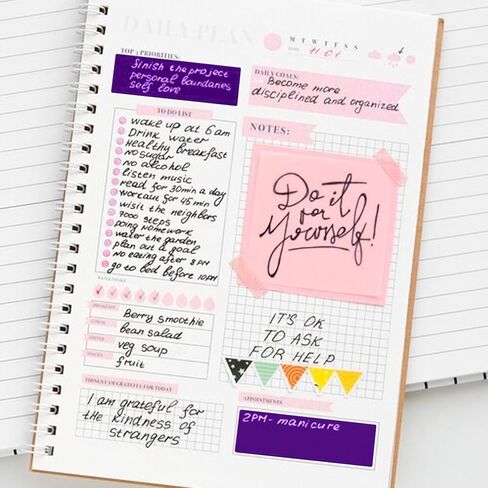 DAILY PLAN
M T W T F S S
DATE: 11.01
TOP 3 PRIORITIES:
finish the project
personal boundaries
self love
DAILY GOALS:
Become more
disciplined and organized
TO DO LIST
wake up at 6 am
Drink water
Healthy breakfast
No sugar
no alcohol
listen music
read for 30 min a day
workout for 45 min
visit the neighbors
7000 steps
doing homework
water the garden
plan out a goal
no eating after 8 PM
go to bed before 10PM
NOTES:
Do it
for
Yourself!
IT'S OK
TO ASK
FOR HELP
WATER INTAKE
BREAKFAST
Berry smoothie
LUNCH
bean salad
DINNER
veg soup
SNACKS
fruit
THINGS I AM GRATEFUL FOR TODAY
I am grateful for
the kindness of
strangers
APPOINTMENTS
2PM - manicure